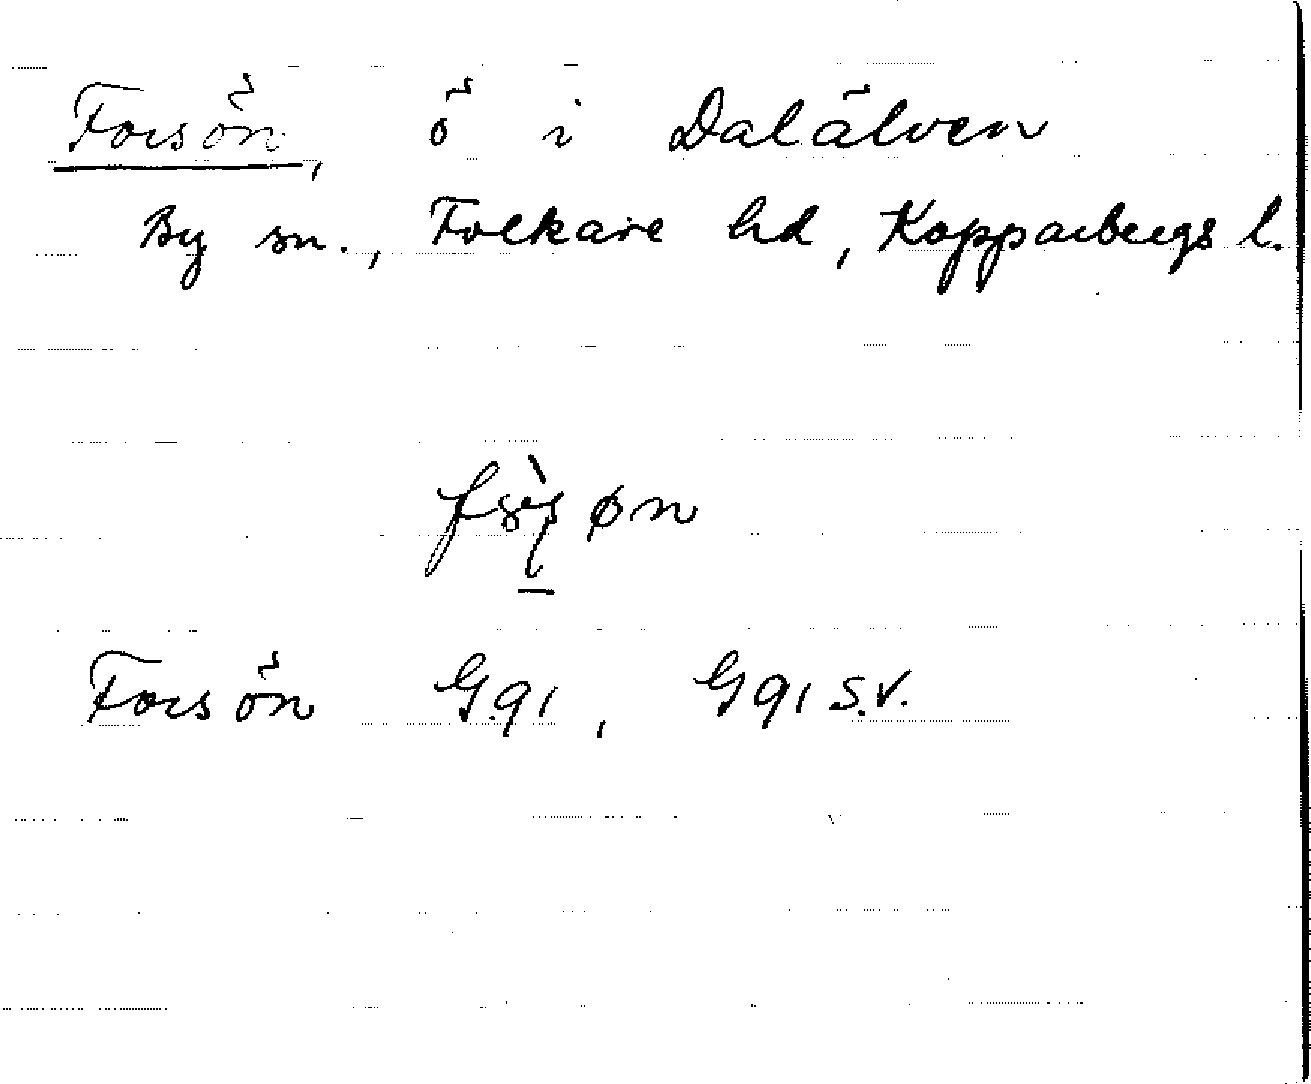 Forsön, ö i Dalälven
By sn., Folkare hd, Kopparbergs l.
Forsön G.91, G91 S.V.